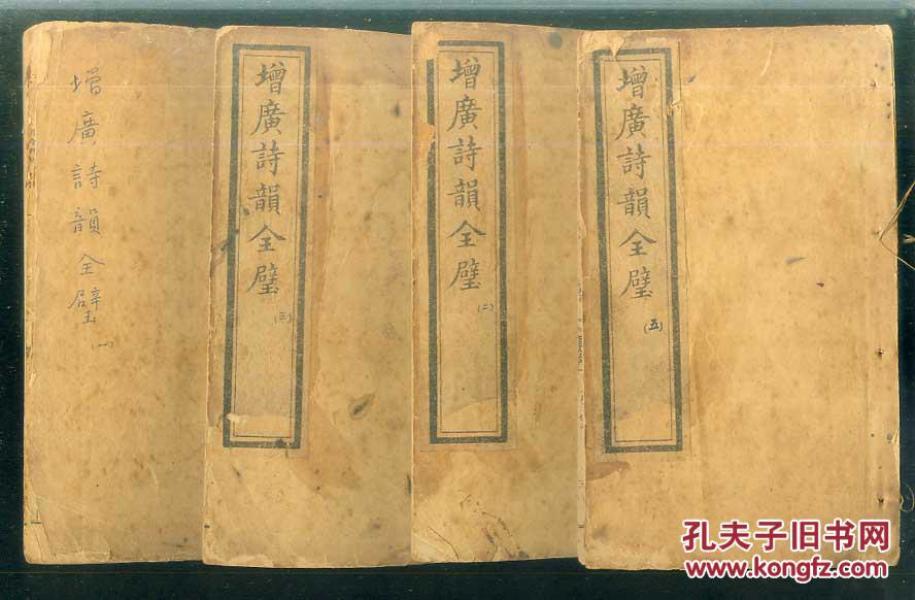 增廣詩韻全璧
(一)
增廣詩韻全璧
(三)
增廣詩韻全璧
(二)
增廣詩韻全璧
(五)
孔夫子旧书网
www.kongfz.com